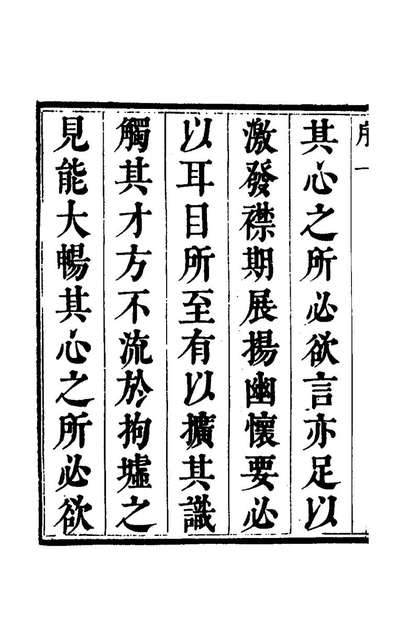 序一
其心之所必欲言亦足以
激發襟期展揚幽懷要必
以耳目所至有以擴其識
觸其才方不流於拘墟之
見能大暢其心之所必欲